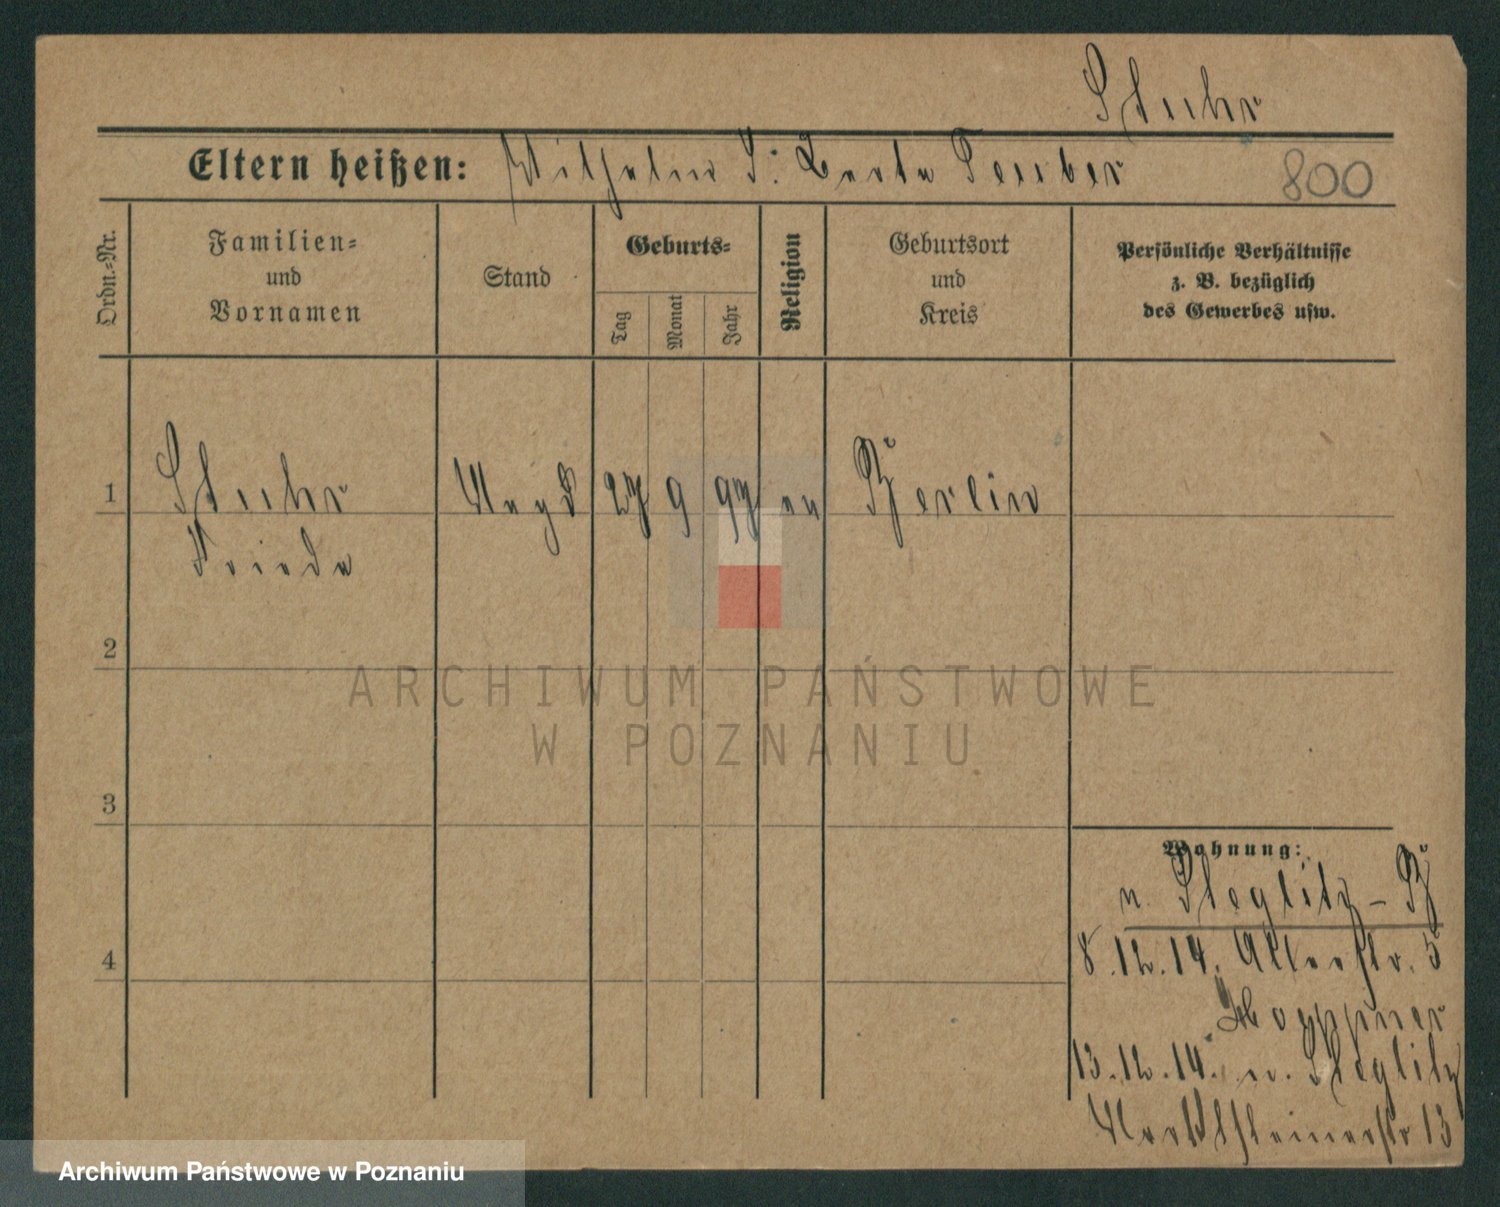 Stuhr
Eltern heißen: Wilhelm S: Berta Teuber 800
Ordn.-Nr.
Familien-
und
Vornamen
Stand
Geburts-
Tag
Monat
Jahr
Religion
Geburtsort
und
Kreis
Persönliche Verhältnisse
z. B. bezüglich
des Gewerbes usw.
1 Stuhr Magd 27 9 97 ev Berlin
Frieda
2
3
4
Wohnung:
n. Steglitz - B
8.12.14. 5
Hoppner
13.12.14. n. Steglitz
13
ARCHIWUM PAŃSTWOWE
W POZNANIU
Archiwum Państwowe w Poznaniu